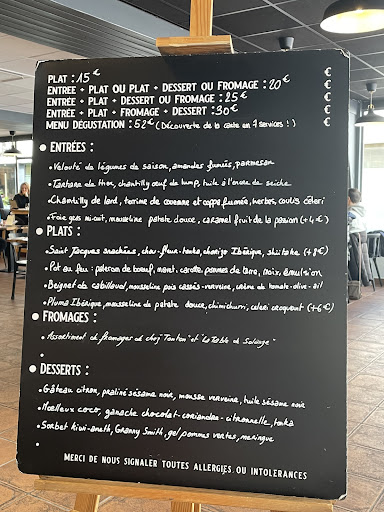 PLAT : 15 €
ENTREE + PLAT OU PLAT + DESSERT OU FROMAGE : 20 € €
ENTRÉE + PLAT + DESSERT OU FROMAGE : 25 € €
ENTRÉE + PLAT + FROMAGE + DESSERT : 30 € €
MENU DÉGUSTATION : 52 € (Découverte de la carte en 7 services !) €
• ENTRÉES :
• Velouté de légumes de saison, amandes fumés, parmesan
• Tartare de thon, chantilly oeuf de lump, tuile à l'encre de seiche
• Chantilly de lard, terrine de couenne et copps fumés, herbes, coulis céleri
• Foie gras micuit, mousseline patate douce, caramel fruit de la passion (+4€)
• PLATS :
• Saint Jacques snackées, chou-fleur-tonka, chorizo Ibérique, shiitake (+8€)
• Pot au feu : paleron de boeuf, navet, carotte, pommes de terre, noix, émulsion
• Beignet de cabillaud, mousseline pois cassés-verveine, crème de tomate-olive-ail
• Pluma Ibérique, mousseline de patate douce, chimichurri, celeri croquant (+6€)
• FROMAGES :
• Assortiment de fromages de chez "Tonton" et "La Table de Solange"
•
• DESSERTS :
• Gâteau citron, praliné sésame noir, mousse verveine, tuile sésame noir
• Moelleux coco, ganache chocolat-coriandre-citronnelle, tonka
• Sorbet kiwi-aneth, Granny Smith, gel pommes vertes, meringue
•
MERCI DE NOUS SIGNALER TOUTES ALLERGIES OU INTOLERANCES